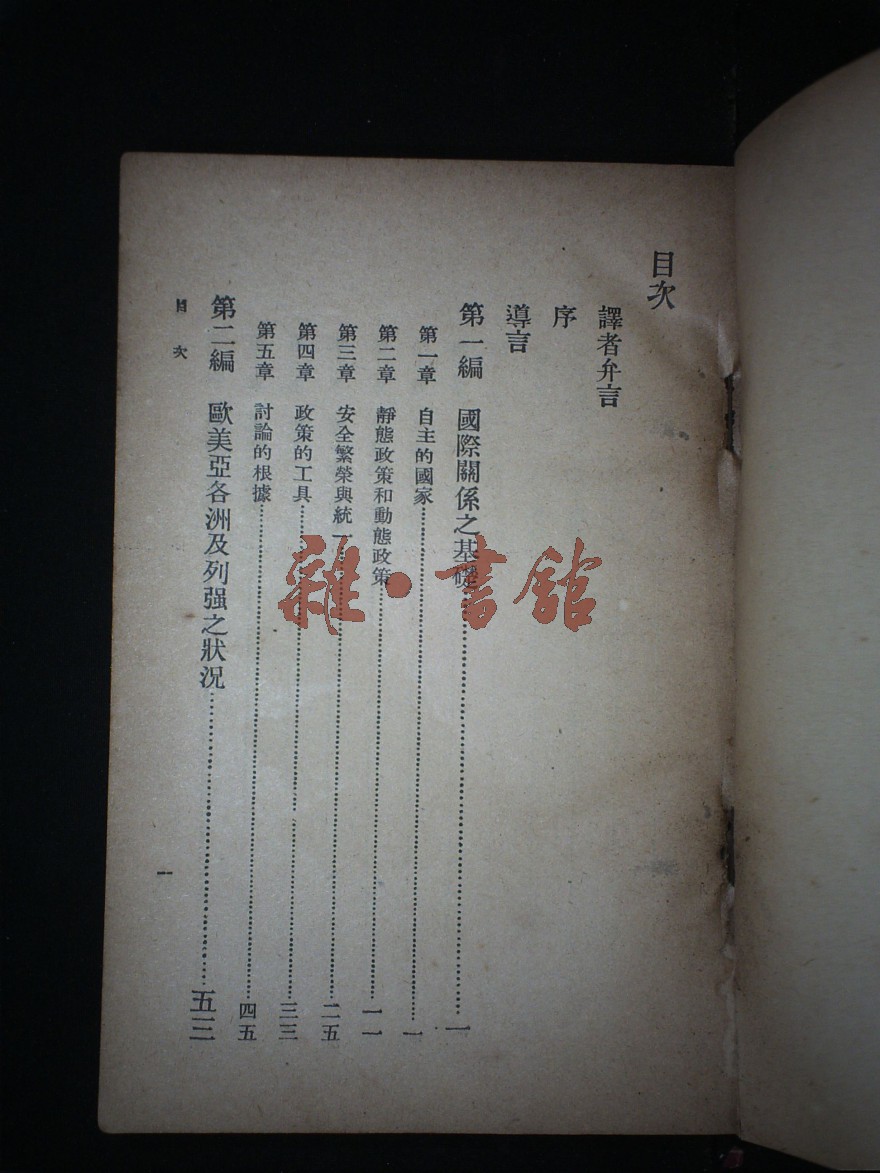 目次
譯者弁言
序
導言
第一編 國際關係之基礎……一
第一章 自主的國家……一
第二章 靜態政策和動態政策……一一
第三章 安全繁榮與統一……二五
第四章 政策的工具……三三
第五章 討論的根據……四五
第二編 歐美亞各洲及列强之狀況……五三
目次
一
雜·書館